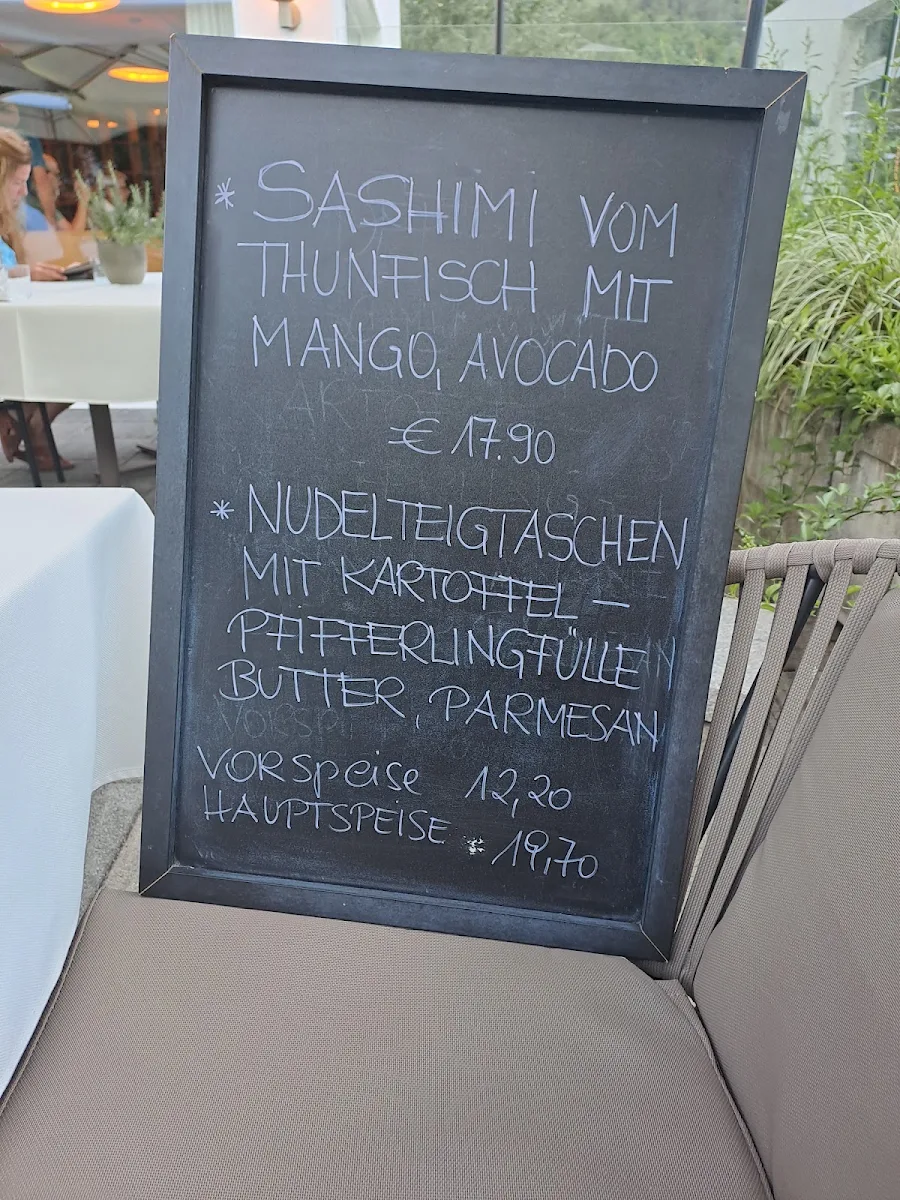 * SASHIMI VOM
THUNFISCH MIT
MANGO, AVOCADO
€ 17.90
* NUDELTEIGTASCHEN
MIT KARTOFFEL -
PFIFFERLINGFÜLLE
BUTTER, PARMESAN
VORSpeise 12,20
HAUPTSPEISE 19,70